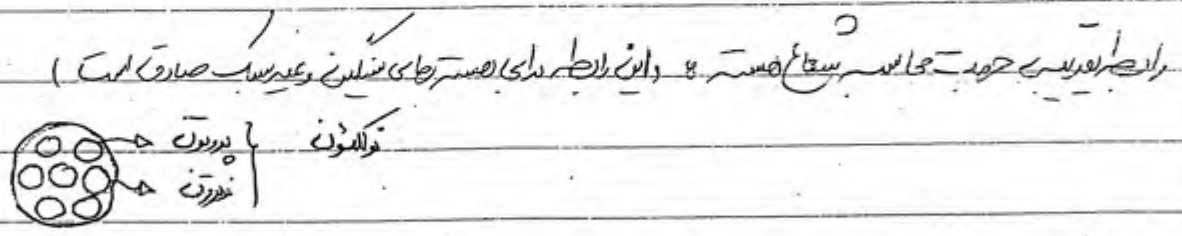 رابطه تقریبی جهت محاسبه شعاع هسته : (این رابطه برای هسته های سنگین و غیر سبک صادق است)
پروتون } نوکلئون
نوترون